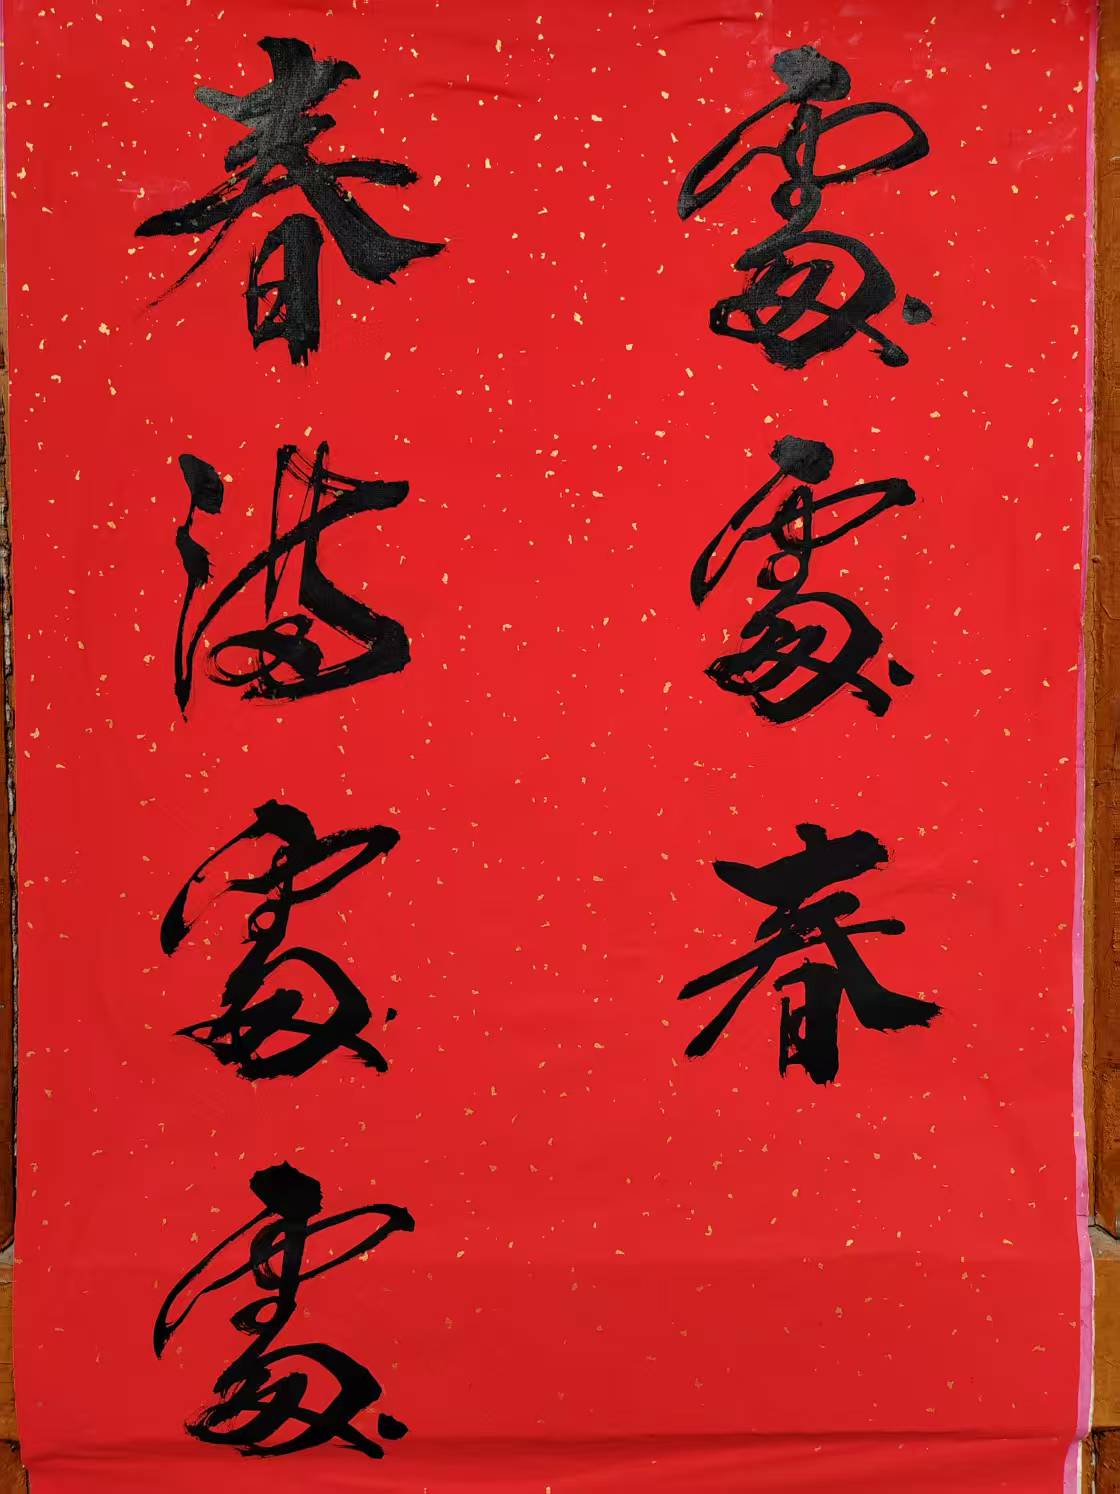 處處春
春滿處處